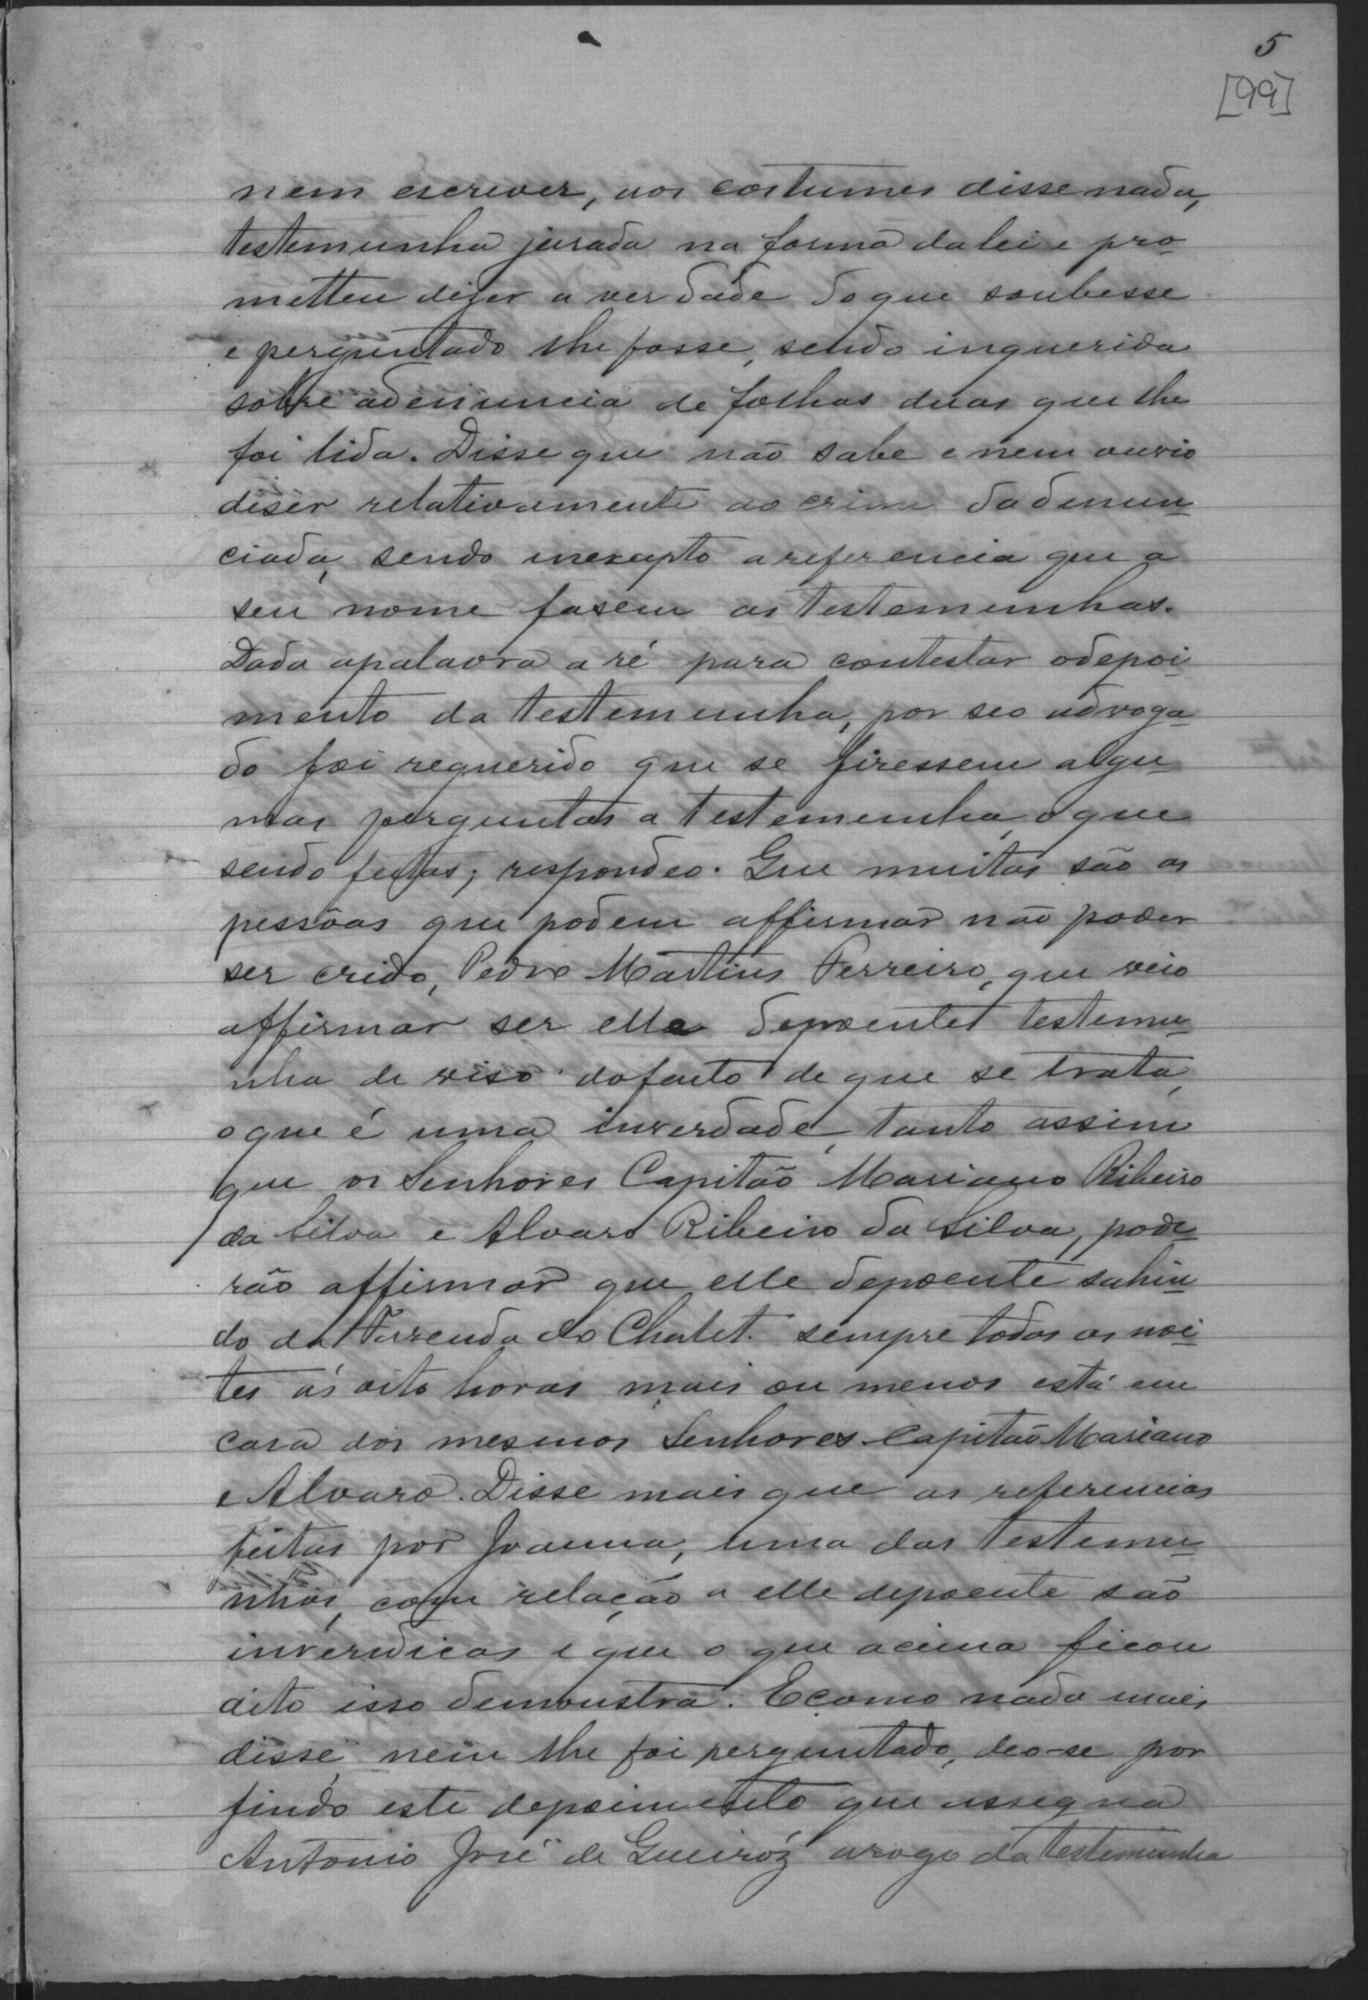 5
[99]
nem escrever, aos costumes disse nada,
testemunha jurada na forma da lei e pro-
metteu diser a verdade do que soubesse
e perguntado lhe fosse, sendo inquerida
sobre a denuncia de folhas duas que lhe
foi lida. Disse que não sabe e nem ouvio
diser relativamente ao crime da denun-
ciada, sendo inexapto a referencia que a
seu nome fasem as testemunhas.
Dada apalavra a ré para contestar o depoi-
mento da testemunha, por seo advoga-
do foi requerido que se firessem algu-
mas perguntas a testemunha, o que
sendo feitas; respondeo. Que muitas são as
pessôas que podem affirmar não poder
ser crido, Pedro Martins Ferreira, que veio
affirmar ser elle depoente testemu-
nha de viso do facto de que se trata,
o que é uma inverdade, tanto assim
que os Senhores Capitão Mariano Ribeiro
da Silva e Alvaro Ribeiro da Silva, pode-
rão affirmar que elle depoente sahin-
do da Fazenda do Chalet sempre todas as noi-
tes ás oito horas mais ou menos está em
casa dos mesmos Senhores Capitão Mariano
e Alvaro. Disse mais que as referencias
feitas por Joanna, uma das testemu-
nhas, com relação a elle depoente são
inveridicas e que o que acima ficou
dito isso demonstra. E como nada mais
disse, nem lhe foi perguntado, deo-se por
findo este depoimento que assegna
Antonio José de Queiróz a rogo da testemunha